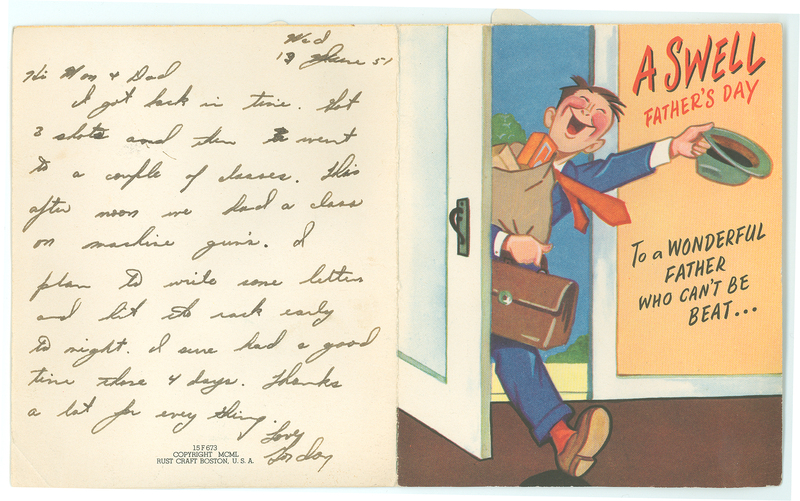 Wed
13 June 51
Hi Mom & Dad
I got back in time. Got
3 shots and then went
to a couple of classes. This
after noon we had a class
on machine gun's. I
plan to write some letters
and hit the rack early
to night. I sure had a good
time those 4 days. Thanks
a lot for every thing.
Love
15F673
COPYRIGHT MCML
RUST CRAFT BOSTON, U. S. A.
A SWELL
FATHER'S DAY
To a WONDERFUL
FATHER
WHO CAN'T BE
BEAT...